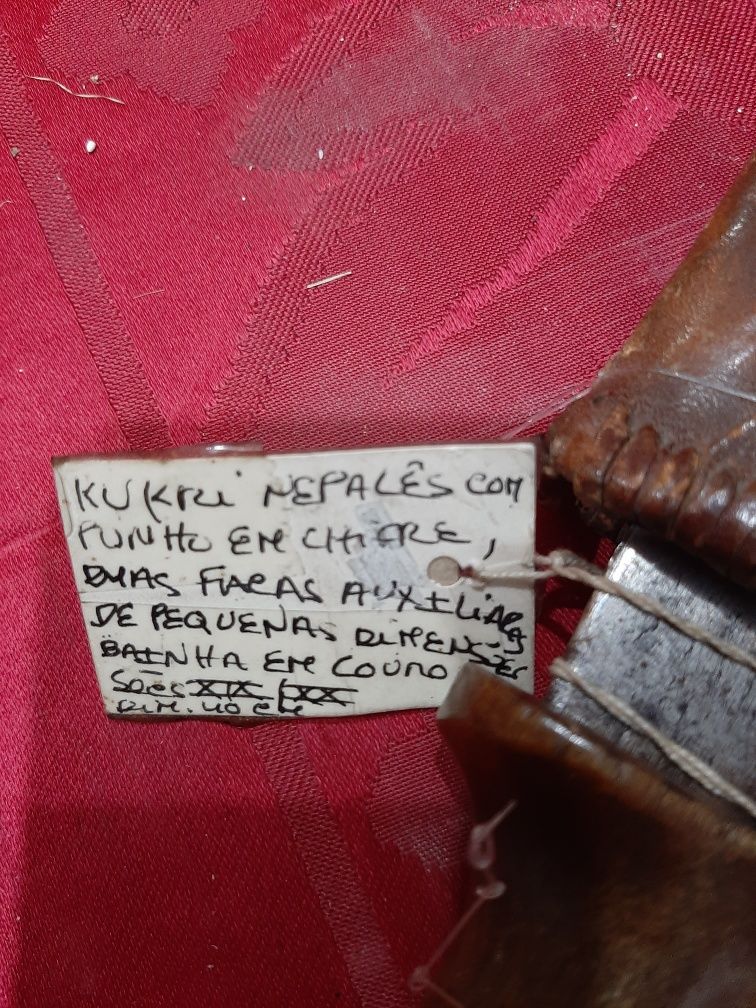 KUKRI NEPALÊS COM
PUNHO EM CHIFRE,
DUAS FACAS AUXILIARES
DE PEQUENAS DIMENSÕES
BAINHA EM COURO
XIX / XX
DIM. 40 CM